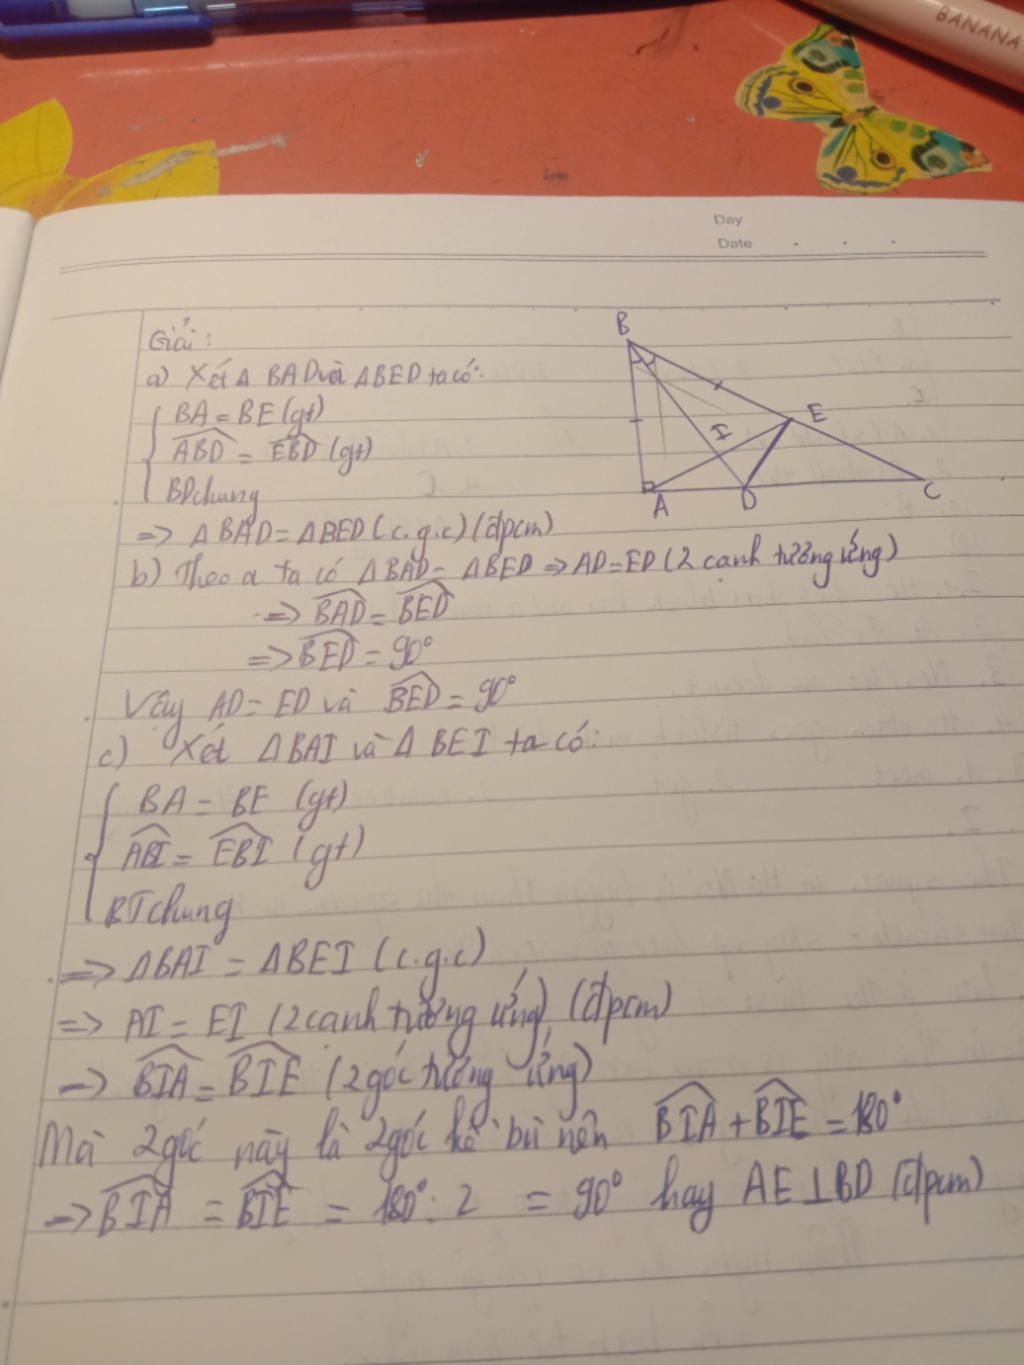 BANANA
Day
Date . . .
Giải:
a) Xét Δ BAD và ΔBED ta có:
BA = BE (gt)
ABD = EBD (gt)
BD chung
=> ΔBAD = ΔBED (c.g.c) (đpcm)
b) Theo a ta có ΔBAD = ΔBED => AD = ED (2 cạnh tương ứng)
=> BAD = BED
=> BED = 90°
Vậy AD = ED và BED = 90°
c) Xét ΔBAI và Δ BEI ta có:
BA = BE (gt)
ABI = EBI (gt)
BI chung
=> ΔBAI = ΔBEI (c.g.c)
=> AI = EI (2 cạnh tương ứng) (đpcm)
=> BIA = BIE (2 góc tương ứng)
Mà 2 góc này là 2 góc kề bù nên BIA + BIE = 180°
=> BIA = BIE = 180° : 2 = 90° hay AE ⊥ BD (đpcm)
B
E
I
A
D
C